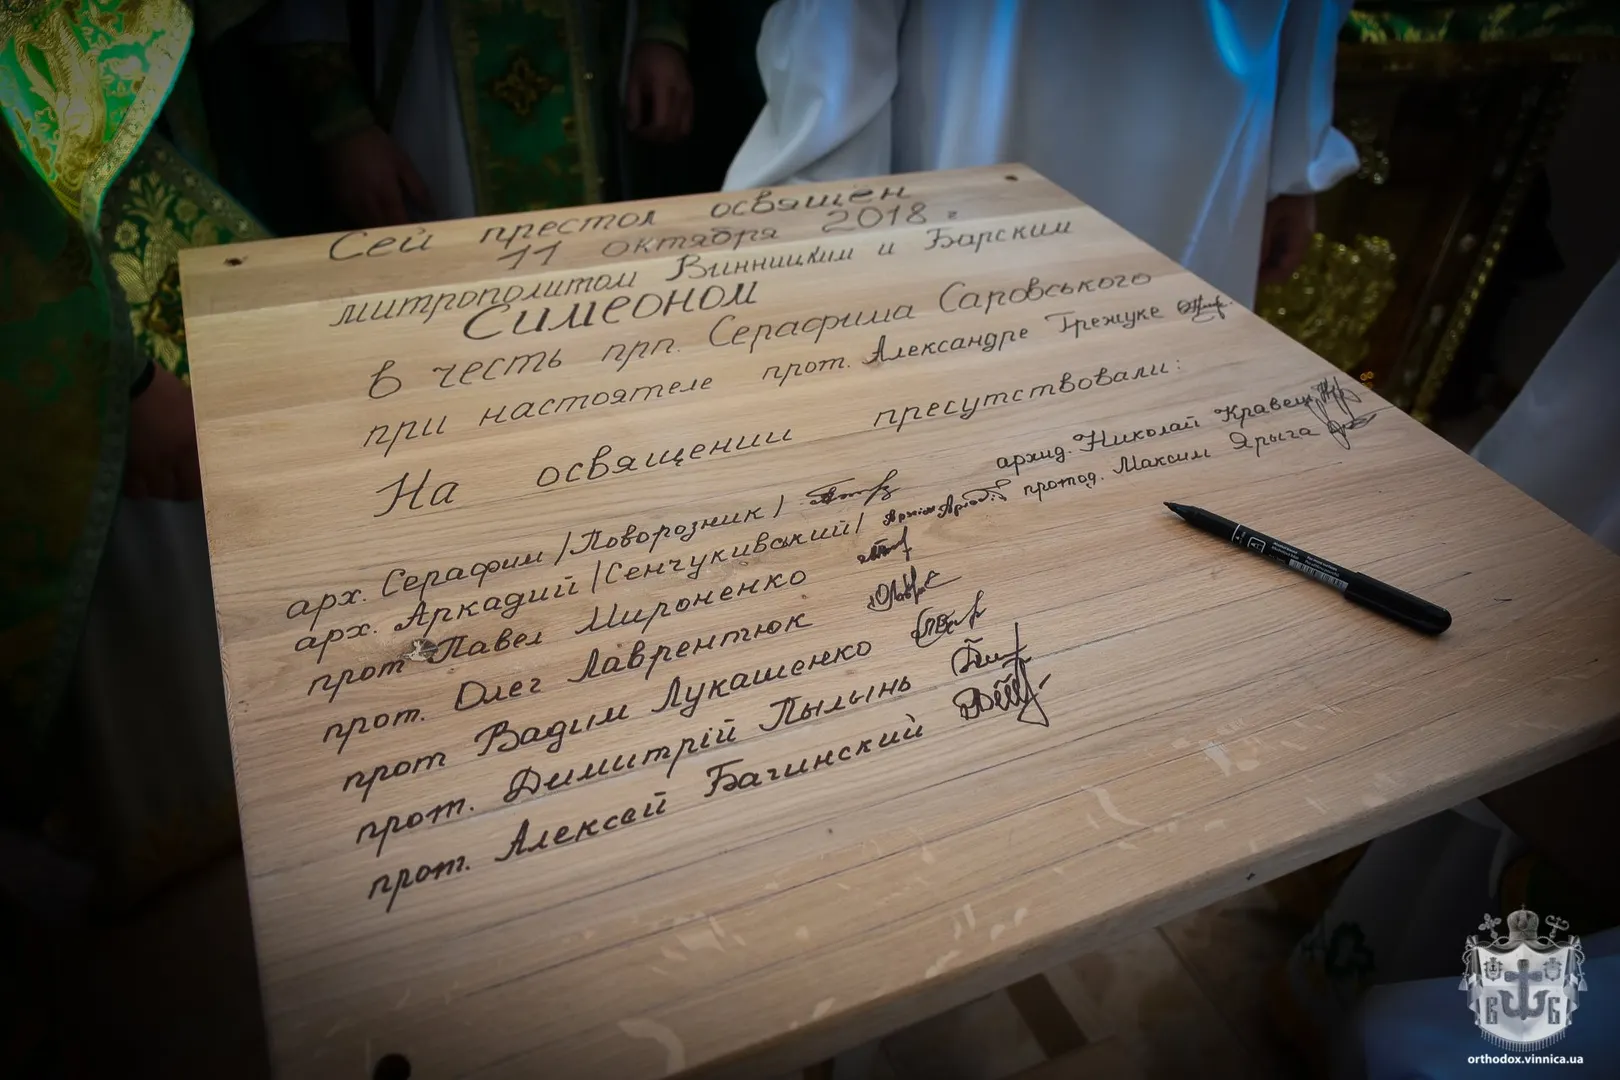 Сей престол освящен
11 октября 2018 г
митрополитом Винницким и Барским
Симеоном
в честь прп. Серафима Саровського
при настоятеле прот. Александре Грежуке
На освящении присутствовали:
арх. Серафим /Поворозник/
арх. Аркадий /Сенчукивський/
прот Павел Мироненко
прот. Олег Лаврентюк
прот Вадим Лукашенко
прот. Димитрій Пылынь
прот. Алексей Багинский
архид. Николай Кравец
протод. Максим Ярыга
В Б
orthodox.vinnica.ua